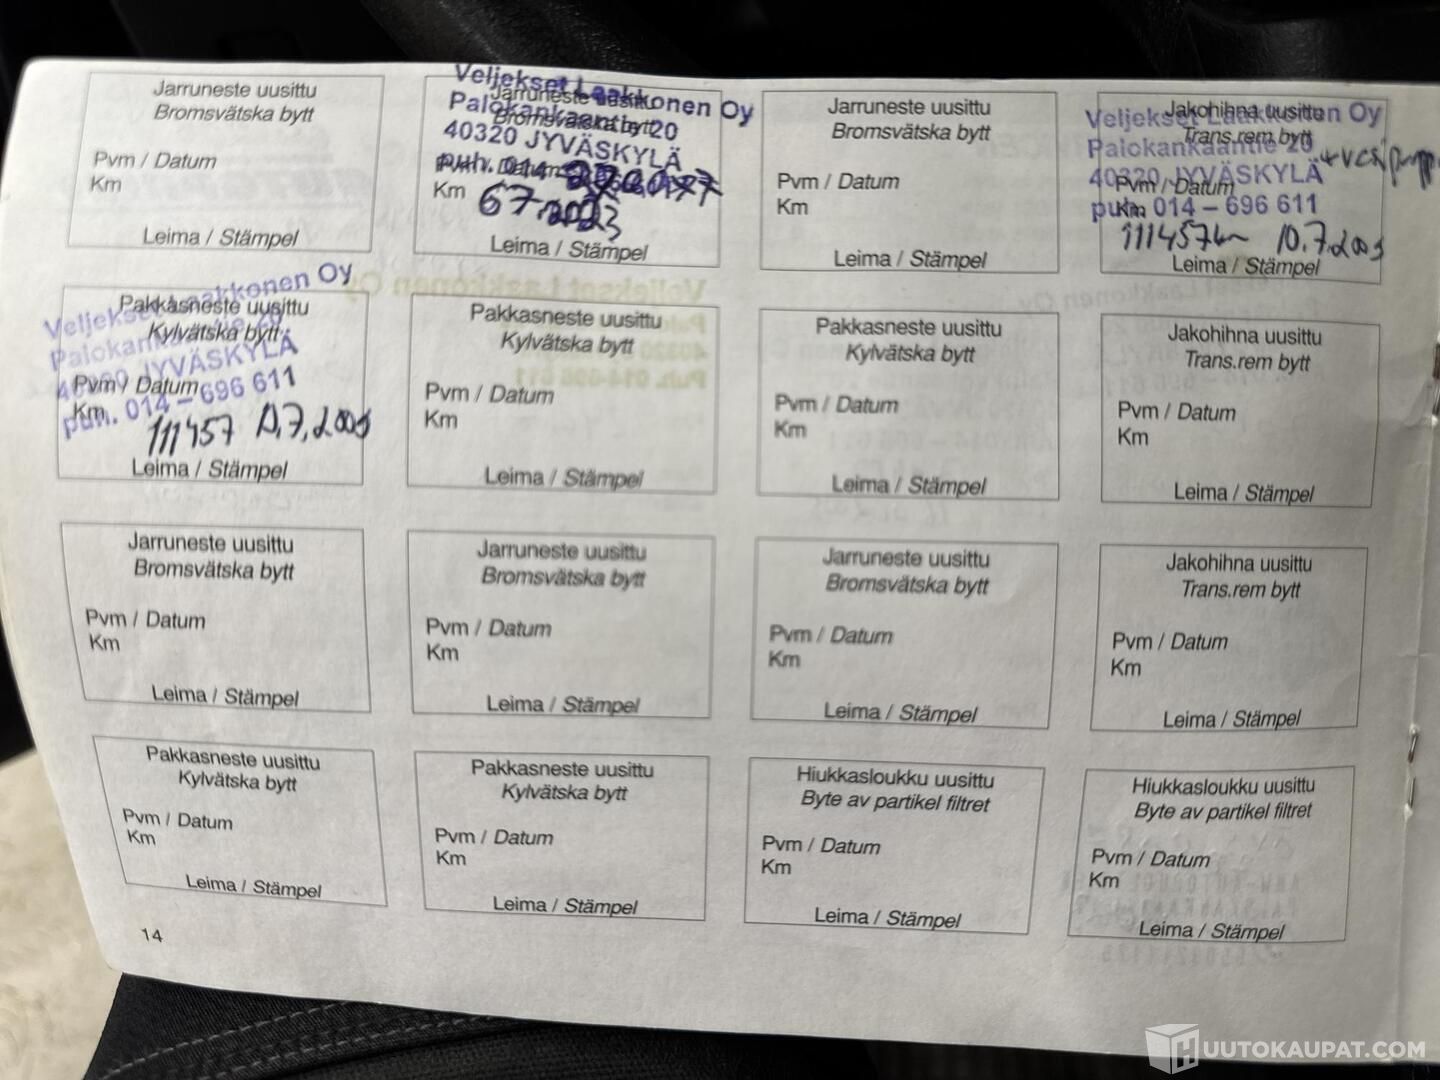 Jarruneste uusittu
Bromsvätska bytt
Pvm / Datum
Km
Leima / Stämpel
Veljekset Laakkonen Oy
Jarruneste uusittu
Palokankaantie 20
Bromsvätska bytt
40320 JYVÄSKYLÄ
puh. 014
Pvm / Datum
Km
Leima / Stämpel
Jarruneste uusittu
Bromsvätska bytt
Pvm / Datum
Km
Leima / Stämpel
Jakohihna uusittu
Veljekset Laakkonen Oy
Trans.rem bytt
Palokankaantie 20
40320 JYVÄSKYLÄ
Pvm / Datum
Km
puh. 014 – 696 611
111457km 10.7.2009
Leima / Stämpel
Veljekset Laakkonen Oy
Pakkasneste uusittu
Kylvätska bytt
Palokankaantie 20
40320 JYVÄSKYLÄ
Pvm / Datum
Km
puh. 014 – 696 611
111457 10.7.2009
Leima / Stämpel
Pakkasneste uusittu
Kylvätska bytt
Pvm / Datum
Km
Leima / Stämpel
Pakkasneste uusittu
Kylvätska bytt
Pvm / Datum
Km
Leima / Stämpel
Jakohihna uusittu
Trans.rem bytt
Pvm / Datum
Km
Leima / Stämpel
Jarruneste uusittu
Bromsvätska bytt
Pvm / Datum
Km
Leima / Stämpel
Jarruneste uusittu
Bromsvätska bytt
Pvm / Datum
Km
Leima / Stämpel
Jarruneste uusittu
Bromsvätska bytt
Pvm / Datum
Km
Leima / Stämpel
Jakohihna uusittu
Trans.rem bytt
Pvm / Datum
Km
Leima / Stämpel
Pakkasneste uusittu
Kylvätska bytt
Pvm / Datum
Km
Leima / Stämpel
Pakkasneste uusittu
Kylvätska bytt
Pvm / Datum
Km
Leima / Stämpel
Hiukkasloukku uusittu
Byte av partikel filtret
Pvm / Datum
Km
Leima / Stämpel
Hiukkasloukku uusittu
Byte av partikel filtret
Pvm / Datum
Km
Leima / Stämpel
14
HUUTOKAUPAT.COM